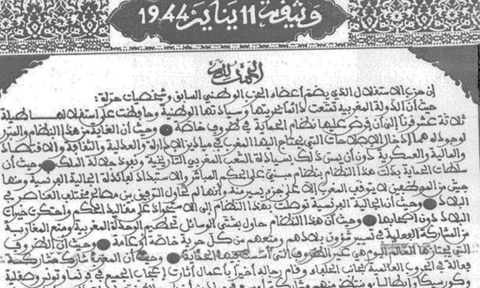 وثيقة 11 يناير 1944
الحمد لله
إن حزب الاستقلال الذي يضم أعضاء الحزب الوطني السابق وشخصيات حرة:
حيث أن الدولة المغربية تمتعت دائما بحريتها وسيادتها الوطنية وحافظت على استقلالها طيلة
ثلاثة عشر قرنا إلى أن فرض عليها نظام الحماية في ظروف خاصة ● وحيث أن الغاية من هذا النظام والمبرر
لوجوده هما إدخال الإصلاحات التي يحتاج إليها المغرب في ميادين الإدارة والعدلية والثقافة والاقتصاد
والمالية والعسكرية دون أن يمس ذلك بسيادة الشعب المغربي التاريخية ونفوذ جلالة الملك ● وحيث أن
سلطات الحماية بدلت هذا النظام بنظام مبني على الحكم المباشر والاستبداد لفائدة الجالية الفرنسية ومنها
جيش من الموظفين لا يتوقف المغرب إلا على جزء يسير منه وأنها لم تحاول التوفيق بين مصالح مختلف العناصر في
البلاد ● وحيث أن الجالية الفرنسية توصلت بهذا النظام إلى الاستحواذ على مقاليد الحكم واحتكرت خيرات
البلاد دون أصحابها ● وحيث أن هذا النظام حاول بشتى الوسائل تحطيم الوحدة المغربية ومنع المغاربة
من المشاركة الفعلية في تسيير شؤون بلادهم ومنعهم من كل حرية خاصة أو عامة ● وحيث أن الظروف
التي يجتازها العالم اليوم هي غير الظروف التي أسست فيها الحماية ● وحيث أن المغرب شارك مشاركة
فعالة في الحروب العالمية بجانب الحلفاء وقام رجاله أخيرا بأعمال أثارت إعجاب الجميع في فرنسا وتونس وصقلية
وكورسيكا وإيطاليا وينتظر منهم مشاركة أوسع في ميادين